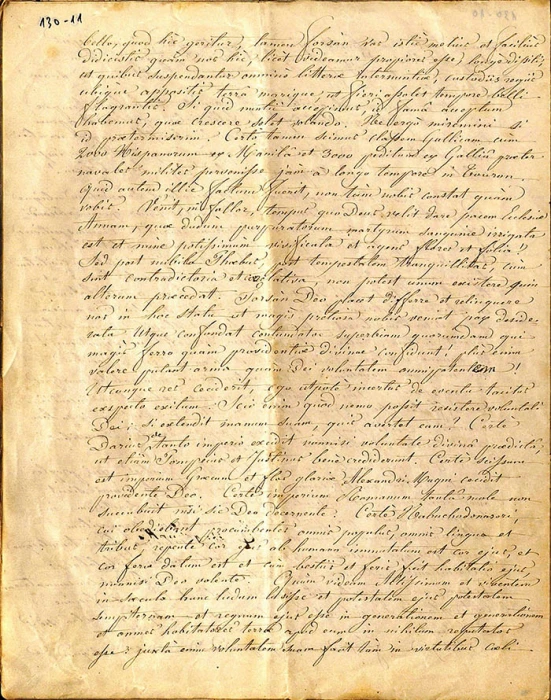 130-11
bello, quod hic geritur, tamen forsàn vos istic melius et facilius
didicistis quàm nos hic, licet videamur propiores esse longè disitis
ut quibus suspendantur omninò litteræ custodiis regiis
ubique appositis terrâ marique, ut fieri assolet tempore belli
flagrantis. Si quid multi accepimus id famâ acceptum
habemus, quæ crescere solet volando. Ne ergò miremini si
id prætermiserim. Certè tamen scimus classem Gallicam cum
2000 Hispanorum ex Manilâ et 3000 peditum ex Galliâ præter
navales milites pervenisse jam à longo tempore in Touron.
Quid autem illic factum fuerit, non tàm nobis constat quàm
vobis. Venit, ni fallor, tempus quo Deus velit dare pacem Ecclesiæ
Annam, quæ diudum martyrum sanguine irrigata
est et nunc potissimum vivificata et agens flores et folia!
Sed post nubila Phœbus, post tempestatem tranquillitas, cùm
sint contradictoria et non potest unum existere quin
alterum præcedat. Forsàn Deo placet differre et relinquere
nos in hoc statu ut magis pretiosa nobis veniat pax deside-
rata utque confundat superbiam quorumdam qui
magis ferro quàm providentiæ divinæ confidunt, plus enim
valere putant arma quàm Dei voluntatem omnipotentem!
Utcunque res ceciderit, ego utpotè incertus de eventu tacitus
exspecto exitum. Scio enim quòd nemo possit resistere voluntati
Dei; si extendit manum suam, quis avertet eam? Certè
Darius de tanto imperio excidit nonnisi voluntate divinâ prædictâ,
ut etiam Pompeius et Justinus benè crediderunt. Certè scissum
est imperium Græcum et flos gloriæ Alexandri Magni cecidit
providente Deo. Certè imperium Romanum tantâ mole non
succubuit nisi sic Deo decernente. Certè Nabuchodonosori,
cui obediebant procumbentes omnis populus, omnis lingua et
tribus, repente cor ejus ab humano immutatum est cor ejus, et
cor feræ datum est et cum bestiis et feris fuit habitatio ejus
nonnisi Deo volente. Quàm videm Altissimum et viventem
in sæcula hunc et potestatem ejus potestatem
sempiternam et regnum ejus esse in generationem et generationem
et omnes habitatores terræ apud eum in nihilum reputatos
esse: juxtà enim voluntatem suam facit tàm in virtutibus cœli